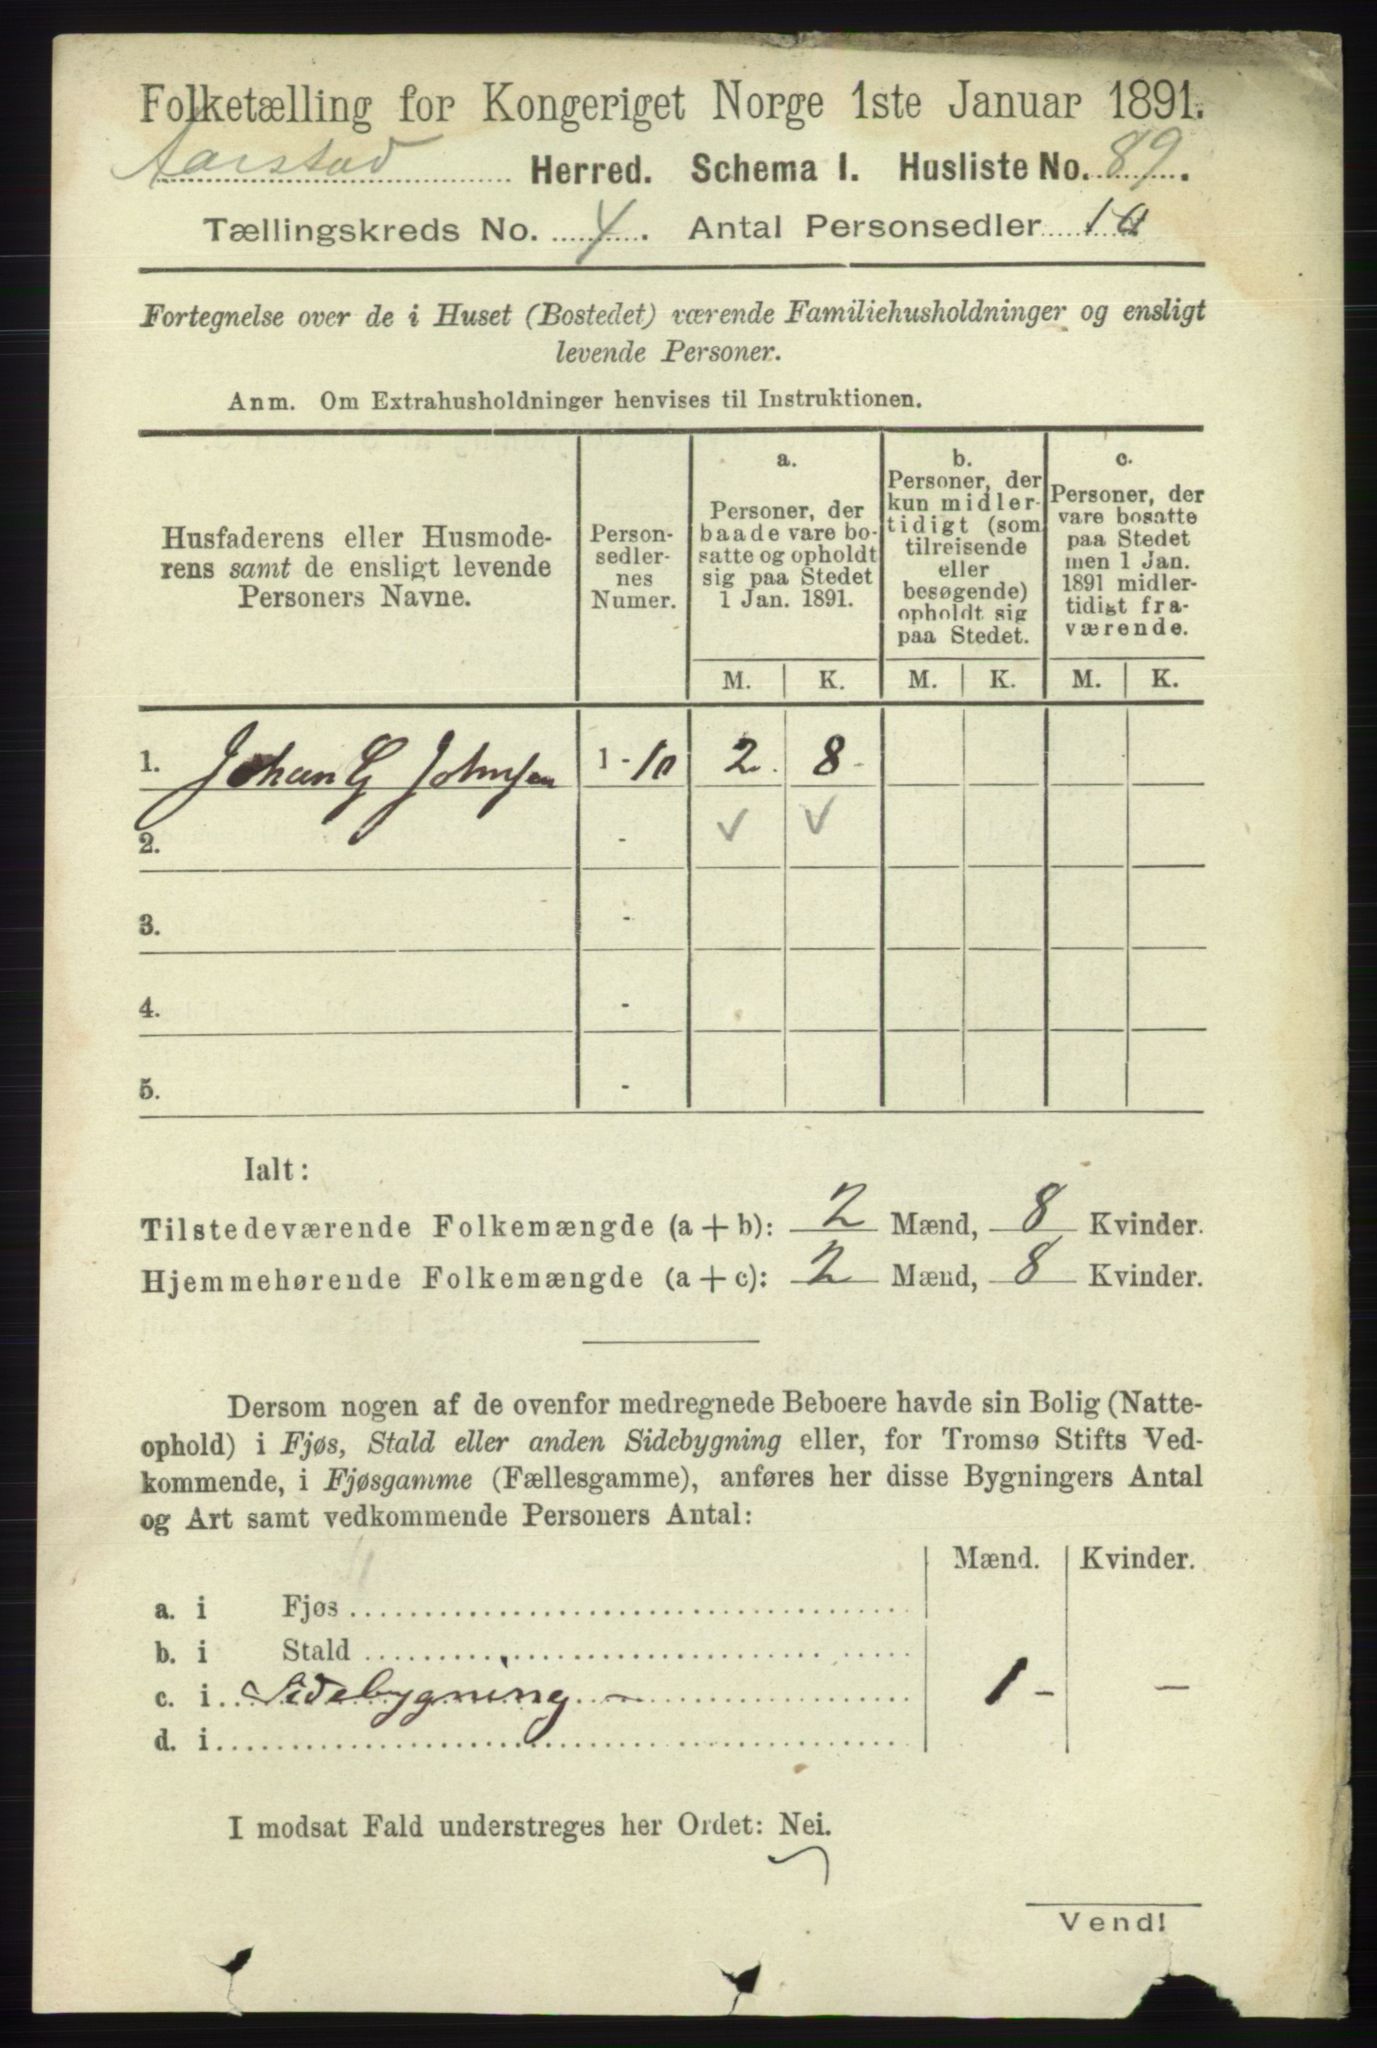 Folketælling for Kongeriget Norge 1ste Januar 1891.
Aarstad Herred. Schema I. Husliste No. 89.
Tællingskreds No. 4. Antal Personsedler 10
Fortegnelse over de i Huset (Bostedet) værende Familiehusholdninger og ensligt
levende Personer.
Anm. Om Extrahusholdninger henvises til Instruktionen.
Husfaderens eller Husmode-
rens samt de ensligt levende
Personers Navne.
Person-
sedler-
nes
Numer.
a.
Personer, der
baade vare bo-
satte og opholdt
sig paa Stedet
1 Jan. 1891.
b.
Personer, der
kun midler-
tidigt (som
tilreisende
eller
besøgende)
opholdt sig
paa Stedet.
c.
Personer, der
vare bosatte
paa Stedet
men 1 Jan.
1891 midler-
tidigt fra-
værende.
M. K. M. K. M. K.
1. Johan G Johnsen 1 - 10 2. 8 -
2. - ✓ ✓
3. -
4. -
5. -
Ialt:
Tilstedeværende Folkemængde (a + b): 2 Mænd, 8 Kvinder.
Hjemmehørende Folkemængde (a + c): 2 Mænd, 8 Kvinder.
Dersom nogen af de ovenfor medregnede Beboere havde sin Bolig (Natte-
ophold) i Fjøs, Stald eller anden Sidebygning eller, for Tromsø Stifts Ved-
kommende, i Fjøsgamme (Fællesgamme), anføres her disse Bygningers Antal
og Art samt vedkommende Personers Antal:
Mænd. Kvinder.
a. i Fjøs
b. i Stald
c. i Sidebygning - 1 - -
d. i
I modsat Fald understreges her Ordet: Nei.
Vend!